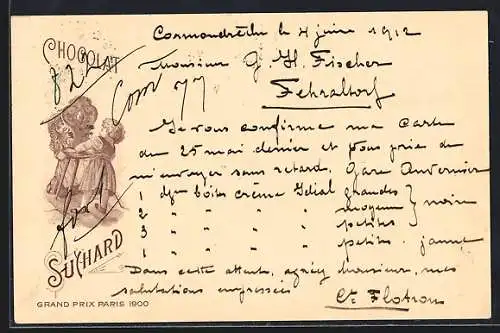 CHOCOLAT
SUCHARD
GRAND PRIX PARIS 1900
822
Com 77
Cormondrèche le 4 juin 1912
Monsieur G. H. Fischer
Fehraltorf
Je vous confirme ma carte
du 25 mai dernier et vous prie de
m'envoyer sans retard. Gare Auvernier
1 dzne boîtes crème Idéal grandes
2 " " " " moyenn } noire
3 " " " " petites
1 " " " " petite. jaune
Dans cette attente, agréez Monsieur, mes
salutations empressées
Flotron